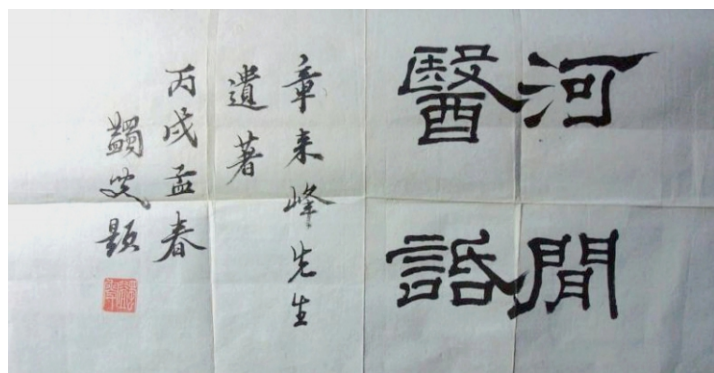 河間
醫話
章来峰先生
遺著
丙戌孟春
蠲叟題